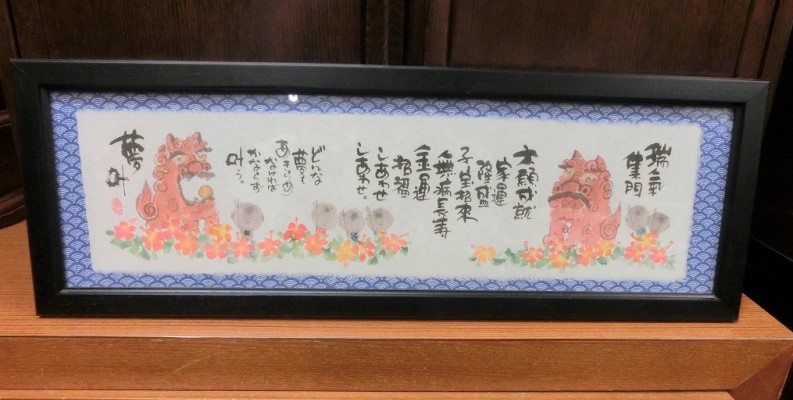 瑞氣
集門
本願成就
家運
隆盛
子宝招来
無病長寿
金運
招福
しあわせ
しあわせ
どんな
夢も
あきらめ
なければ
かならず
叶う。
夢叶